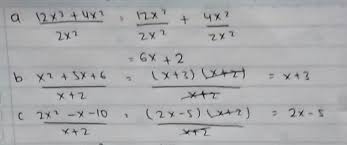 a (12x³ + 4x²)/2x² = 12x³/2x² + 4x²/2x²
= 6x + 2
b (x² + 5x + 6)/(x+2) = (x+3)(x+2)/(x+2) = x+3
c (2x² - x - 10)/(x+2) = (2x-5)(x+2)/(x+2) = 2x-5